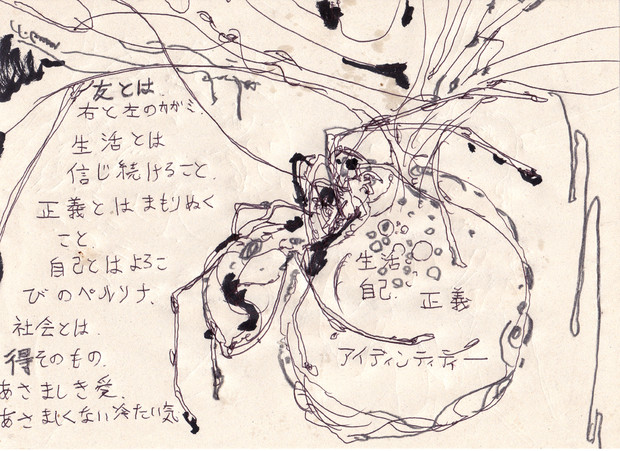 友とは
右と左のカガミ.
生活とは
信じ続けること.
正義とはまもりぬく
こと.
自己とはよろこ
びのペルソナ.
社会とは.
得そのもの.
あさましき愛.
あさましくない冷たい気
生活
自己.
正義
アイディンティティー